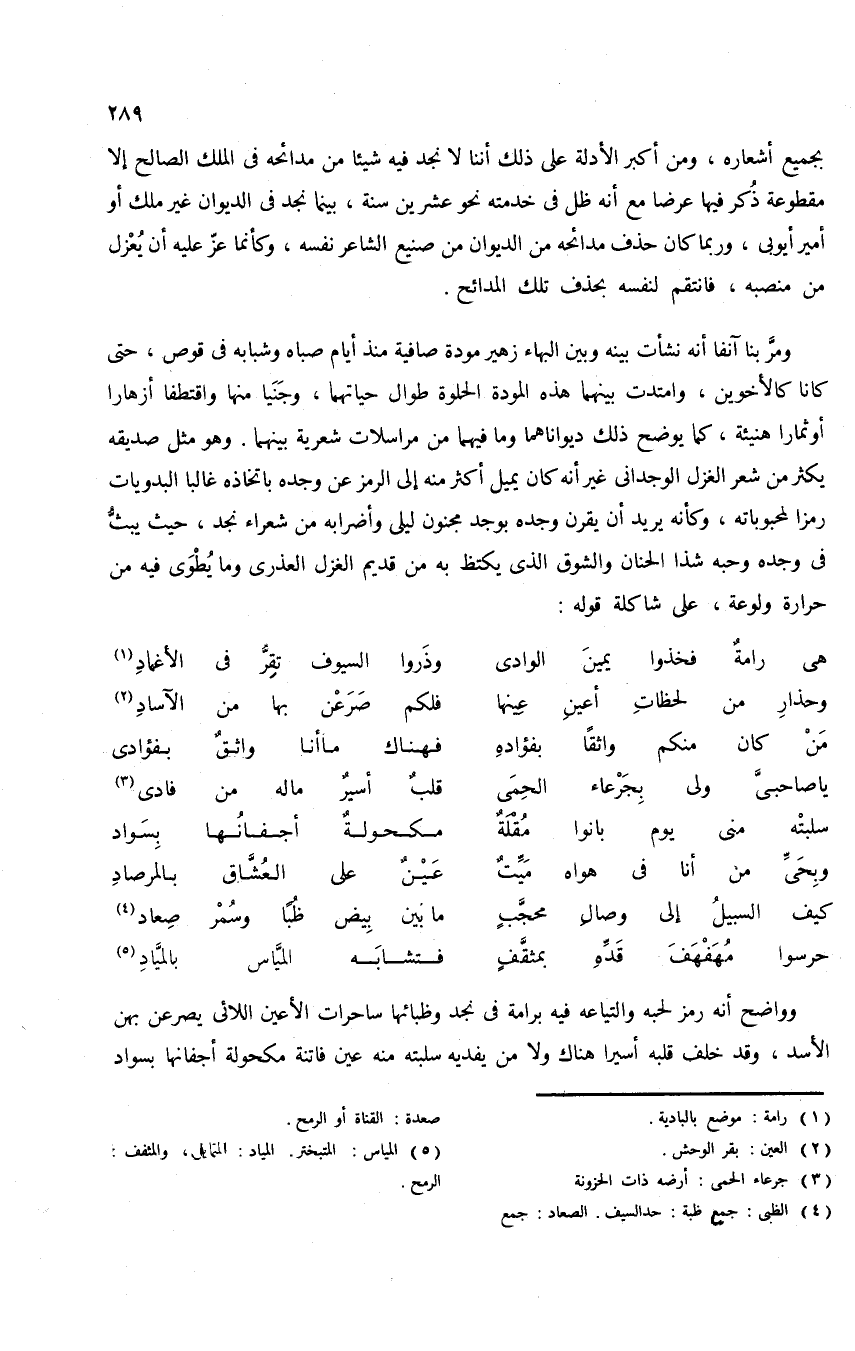 ٢٨٩
بجميع أشعاره ، ومن أكبر الأدلة على ذلك أننا لا نجد فيه شيئا من مدائحه فى الملك الصالح إلا
مقطوعة ذُكر فيها عرضا مع أنه ظل فى خدمته نحو عشرين سنة ، بينما نجد فى الديوان غير ملك أو
أمير أيوبى ، وربما كان حذف مدائحه من الديوان من صنيع الشاعر نفسه ، وكأنما عزّ عليه أن يُعْزل
من منصبه ، فانتقم لنفسه بحذف تلك المدائح .
ومرَّ بنا آنفا أنه نشأت بينه وبين البهاء زهير مودة صافية منذ أيام صباه وشبابه فى قوص ، حتى
كانا كالأخوين ، وامتدت بينهما هذه المودة الحلوة طوال حياتهما ، وجَنَيا منها واقتطفا أزهارا
أوثمارا هنيئة ، كما يوضح ذلك ديواناهما وما فيهما من مراسلات شعرية بينهما . وهو مثل صديقه
يكثر من شعر الغزل الوجدانى غير أنه كان يميل أكثر منه إلى الرمز عن وجده باتخاذه غالبا البدويات
رمزا لمحبوباته ، وكأنه يريد أن يقرن وجده بوجد مجنون ليلى وأضرابه من شعراء نجد ، حيث يبثُّ
فى وجده وحبه شذا الحنان والشوق الذى يكتظ به من قديم الغزل العذرى وما يُطْوَى فيه من
حرارة ولوعة ، على شاكلة قوله :
هى رامةٌ فخذوا يمينَ الوادى وذَروا السيوف تقِرُّ فى الأغمادِ (١)
وحذارِ من لحظاتِ أعينِ عِينها فلكم صَرَعْن بها من الآسادِ (٢)
مَنْ كان منكم واثقًا بفؤادهِ فهناك ماأنا واثقٌ بفؤادى
ياصاحبىَّ ولى بِجَرْعاء الحِمَى قلبٌ أسيرٌ ماله من فادى (٣)
سلبتْه منى يوم بانوا مُقْلَةٌ مكحولةٌ أجفانُها بِسَواد
وبِحَىِّ من أنا فى هواه مَيِّتٌ عَيْنٌ على العُشَّاق بالمرصادِ
كيف السبيلُ إلى وصالِ محجَّبٍ مابَين بِيض ظُبًا وسُمْرْ صِعاد (٤)
حرسوا مُهَفْهَفَ قَدِّهِ بمثقَّفٍ فتشابَه الميَّاس بالميَّادِ (٥)
وواضح أنه رمز لحبه والتياعه فيه برامة فى نجد وظبائها ساحرات الأعين اللائى يصرعن بهن
الأسد ، وقد خلف قلبه أسيرا هناك ولا من يفديه سلبته منه عين فاتنة مكحولة أجفانها بسواد
(١) رامة : موضع بالبادية .
(٢) العين : بقر الوحش .
(٣) جرعاء الحمى : أرضه ذات الحزونة
(٤) الظبى : جمع ظبة : حدالسيف . الصعاد : جمع
صعدة : القناة أو الرمح .
(٥) المياس : المتبختر. المياد : المتايل، والمثقف :
الرمح .